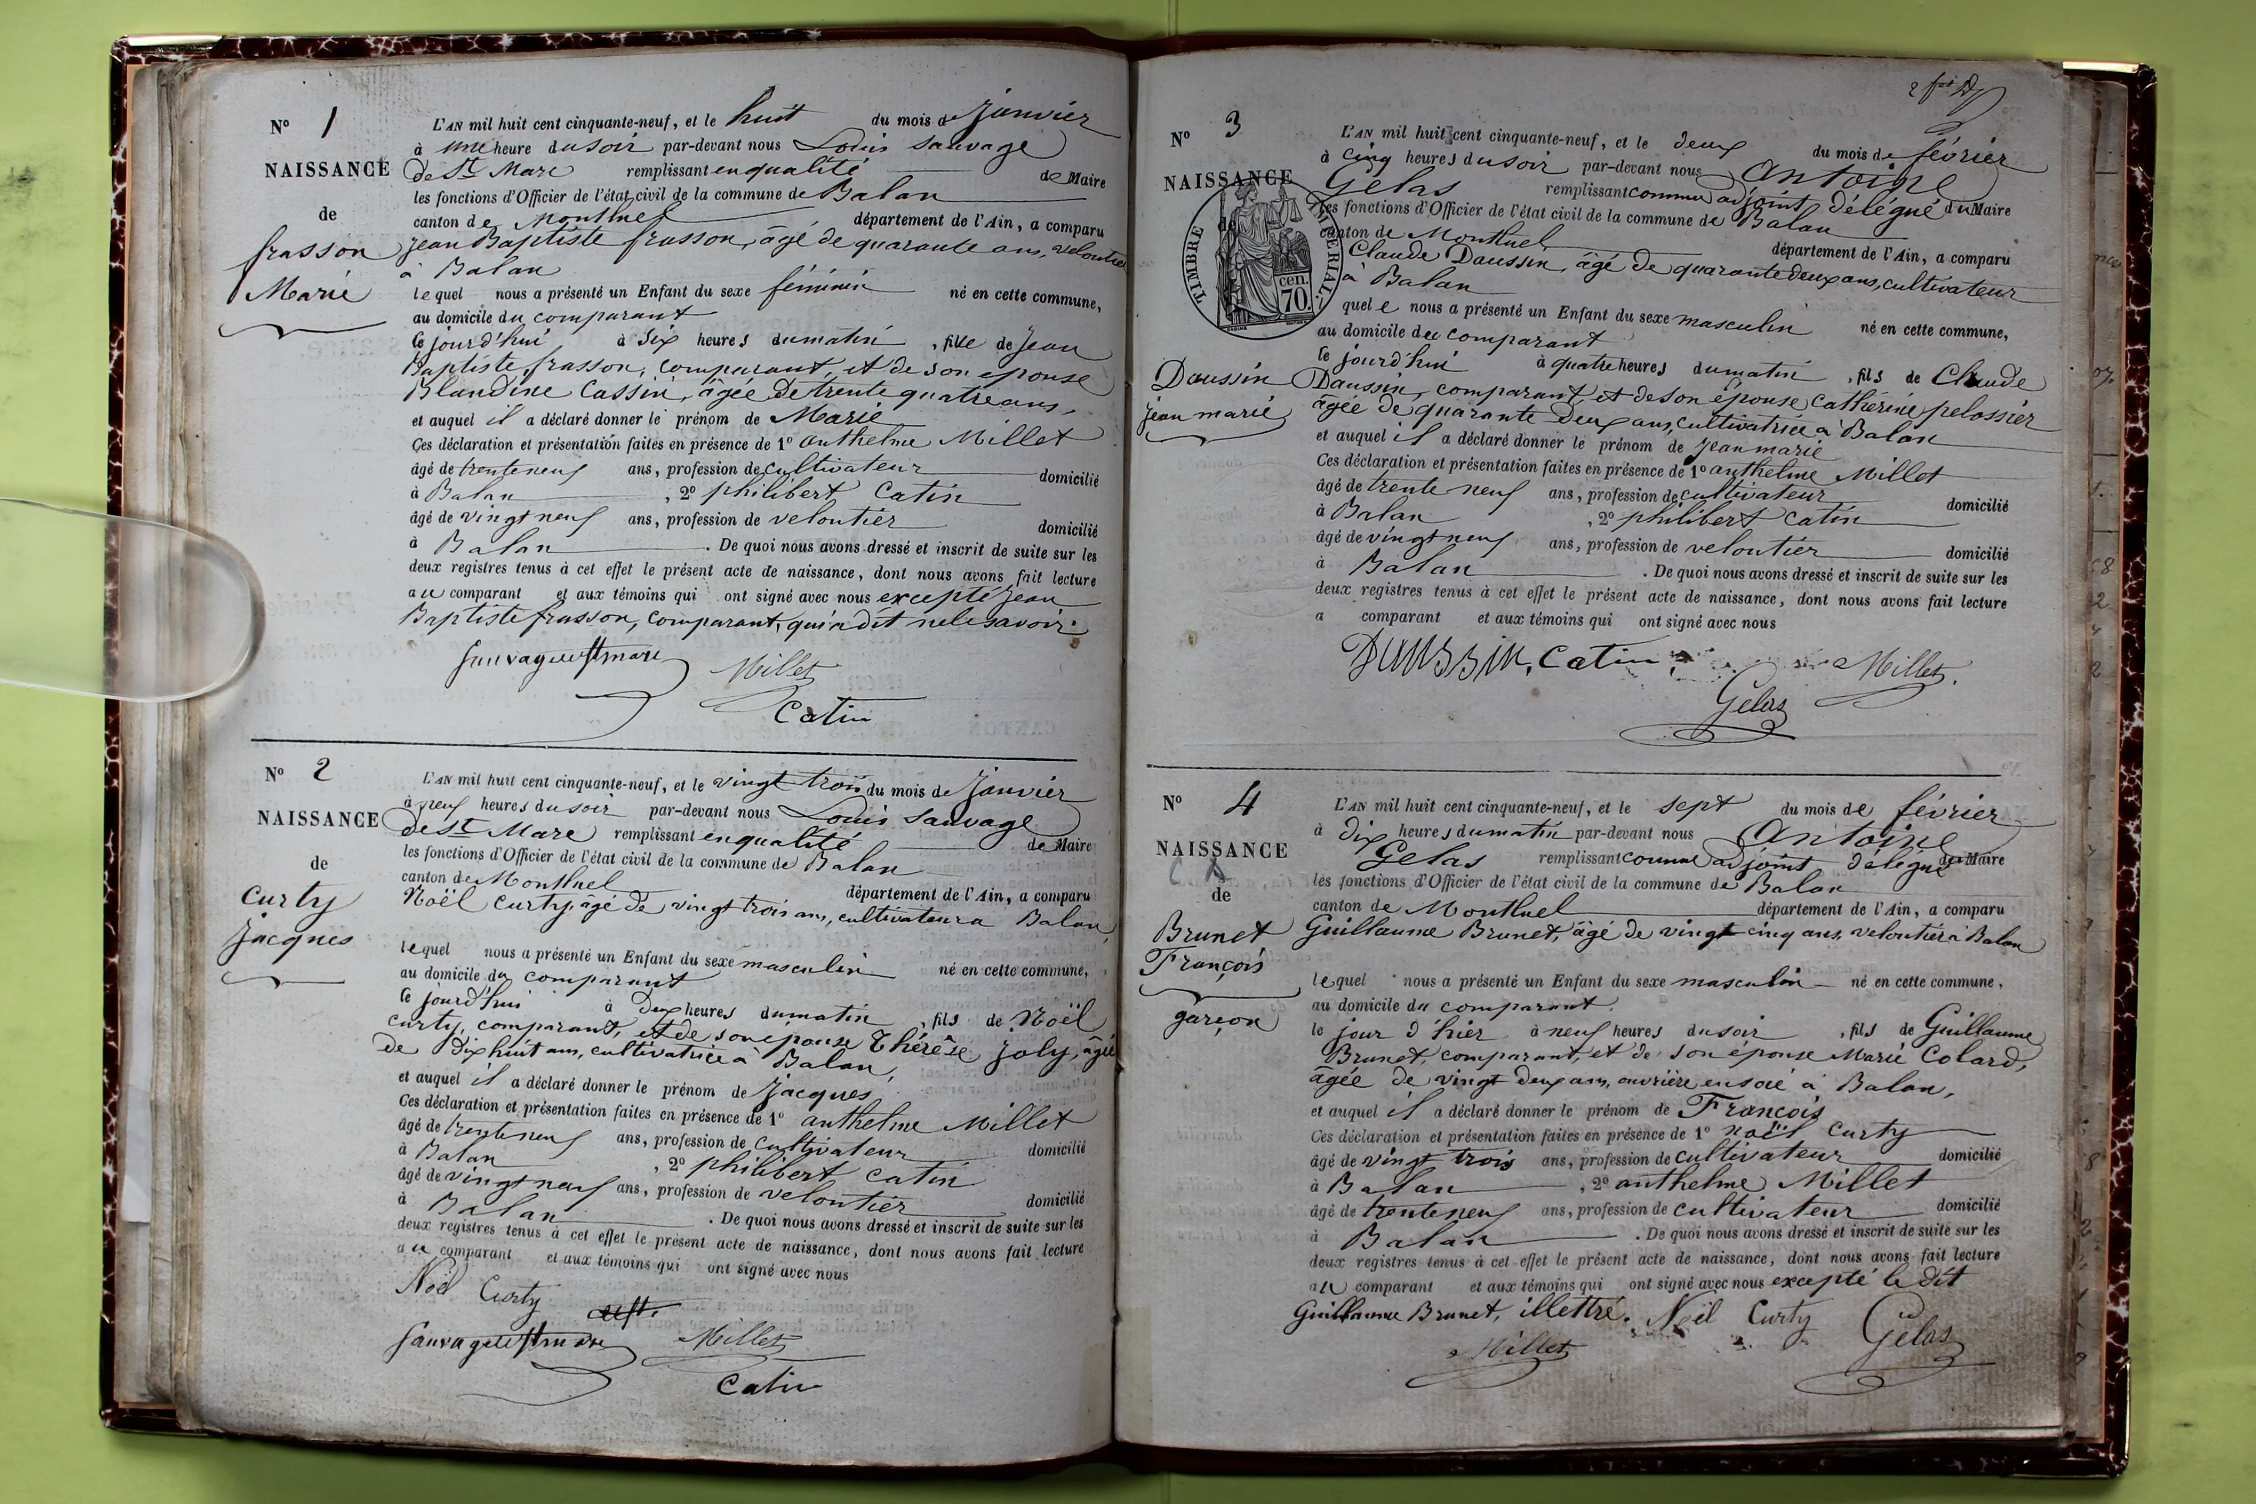 N° 1
NAISSANCE
de
frasson
Marie
L'AN mil huit cent cinquante-neuf, et le huit du mois de janvier
à une heure du soir par-devant nous Louis Sauvage
de St Mare remplissant en qualité de Maire
les fonctions d'Officier de l'état civil de la commune de Balan
canton de Montluel département de l'Ain, a comparu
jean Baptiste frasson, âgé de quarante ans, veloutier
à Balan
lequel nous a présenté un Enfant du sexe féminin né en cette commune,
au domicile du comparant
ce jourd'hui à six heures du matin, fille de jean
Baptiste frasson, comparant, et de son épouse
Blandine Cassin, âgée de trente quatre ans,
et auquel il a déclaré donner le prénom de Marie
Ces déclaration et présentation faites en présence de 1° anthelme Millet
âgé de trente neuf ans, profession de cultivateur domicilié
à Balan, 2° philibert Catin
âgé de vingt neuf ans, profession de veloutier domicilié
à Balan. De quoi nous avons dressé et inscrit de suite sur les
deux registres tenus à cet effet le présent acte de naissance, dont nous avons fait lecture
au comparant et aux témoins qui ont signé avec nous excepté jean
Baptiste frasson, comparant, qui a dit ne le savoir.
Sauvage de St mare Millet
Catin
N° 2
NAISSANCE
de
Curty
Jacques
L'AN mil huit cent cinquante-neuf, et le vingt trois du mois de janvier
à neuf heures du soir par-devant nous Louis Sauvage
de St Mare remplissant en qualité de Maire
les fonctions d'Officier de l'état civil de la commune de Balan
canton de Montluel département de l'Ain, a comparu
Noël Curty, âgé de vingt trois ans, cultivateur à Balan,
lequel nous a présenté un Enfant du sexe masculin né en cette commune,
au domicile du comparant
ce jourd'hui à deux heures du matin, fils de Noël
Curty, comparant, et de son épouse Thérèse Joly, âgée
de dix huit ans, cultivatrice à Balan,
et auquel il a déclaré donner le prénom de Jacques,
Ces déclaration et présentation faites en présence de 1° anthelme Millet
âgé de trente neuf ans, profession de cultivateur domicilié
à Balan, 2° philibert Catin
âgé de vingt neuf ans, profession de veloutier domicilié
à Balan. De quoi nous avons dressé et inscrit de suite sur les
deux registres tenus à cet effet le présent acte de naissance, dont nous avons fait lecture
au comparant et aux témoins qui ont signé avec nous
Noël Curty
Sauvage de St mare Millet
Catin
N° 3
NAISSANCE
de
TIMBRE IMPERIAL
70 cen.
Daussin
jean marie
L'AN mil huit cent cinquante-neuf, et le deux du mois de février
à cinq heures du soir par-devant nous Antoine
Gelas remplissant comme adjoint délégué du Maire
les fonctions d'Officier de l'état civil de la commune de Balan
canton de Montluel département de l'Ain, a comparu
Claude Daussin, âgé de quarante deux ans, cultivateur
à Balan
quel e nous a présenté un Enfant du sexe masculin né en cette commune,
au domicile du comparant
ce jourd'hui à quatre heures du matin, fils de Claude
Daussin, comparant, et de son épouse Catherine pelossier
âgée de quarante deux ans, cultivatrice à Balan
et auquel il a déclaré donner le prénom de jean marie
Ces déclaration et présentation faites en présence de 1° anthelme Millet
âgé de trente neuf ans, profession de cultivateur domicilié
à Balan, 2° philibert Catin
âgé de vingt neuf ans, profession de veloutier domicilié
à Balan. De quoi nous avons dressé et inscrit de suite sur les
deux registres tenus à cet effet le présent acte de naissance, dont nous avons fait lecture
a comparant et aux témoins qui ont signé avec nous
Daussin, Catin, Millet.
Gelas
N° 4
NAISSANCE
de
Brunet
François
garçon
L'AN mil huit cent cinquante-neuf, et le sept du mois de février
à dix heures du matin par-devant nous Antoine
Gelas remplissant comme adjoint délégué du Maire
les fonctions d'Officier de l'état civil de la commune de Balan
canton de Montluel département de l'Ain, a comparu
Guillaume Brunet, âgé de vingt cinq ans, veloutier à Balan
lequel nous a présenté un Enfant du sexe masculin né en cette commune,
au domicile du comparant.
le jour d'hier à neuf heures du soir, fils de Guillaume
Brunet, comparant, et de son épouse Marie Colard,
âgée de vingt deux ans, ouvrière en soie à Balan,
et auquel il a déclaré donner le prénom de François
Ces déclaration et présentation faites en présence de 1° noël Curty
âgé de vingt trois ans, profession de cultivateur domicilié
à Balan, 2° anthelme Millet
âgé de trente neuf ans, profession de cultivateur domicilié
à Balan. De quoi nous avons dressé et inscrit de suite sur les
deux registres tenus à cet effet le présent acte de naissance, dont nous avons fait lecture
au comparant et aux témoins qui ont signé avec nous excepté le dit
Guillaume Brunet, illettré. Noël Curty Gelas
Millet